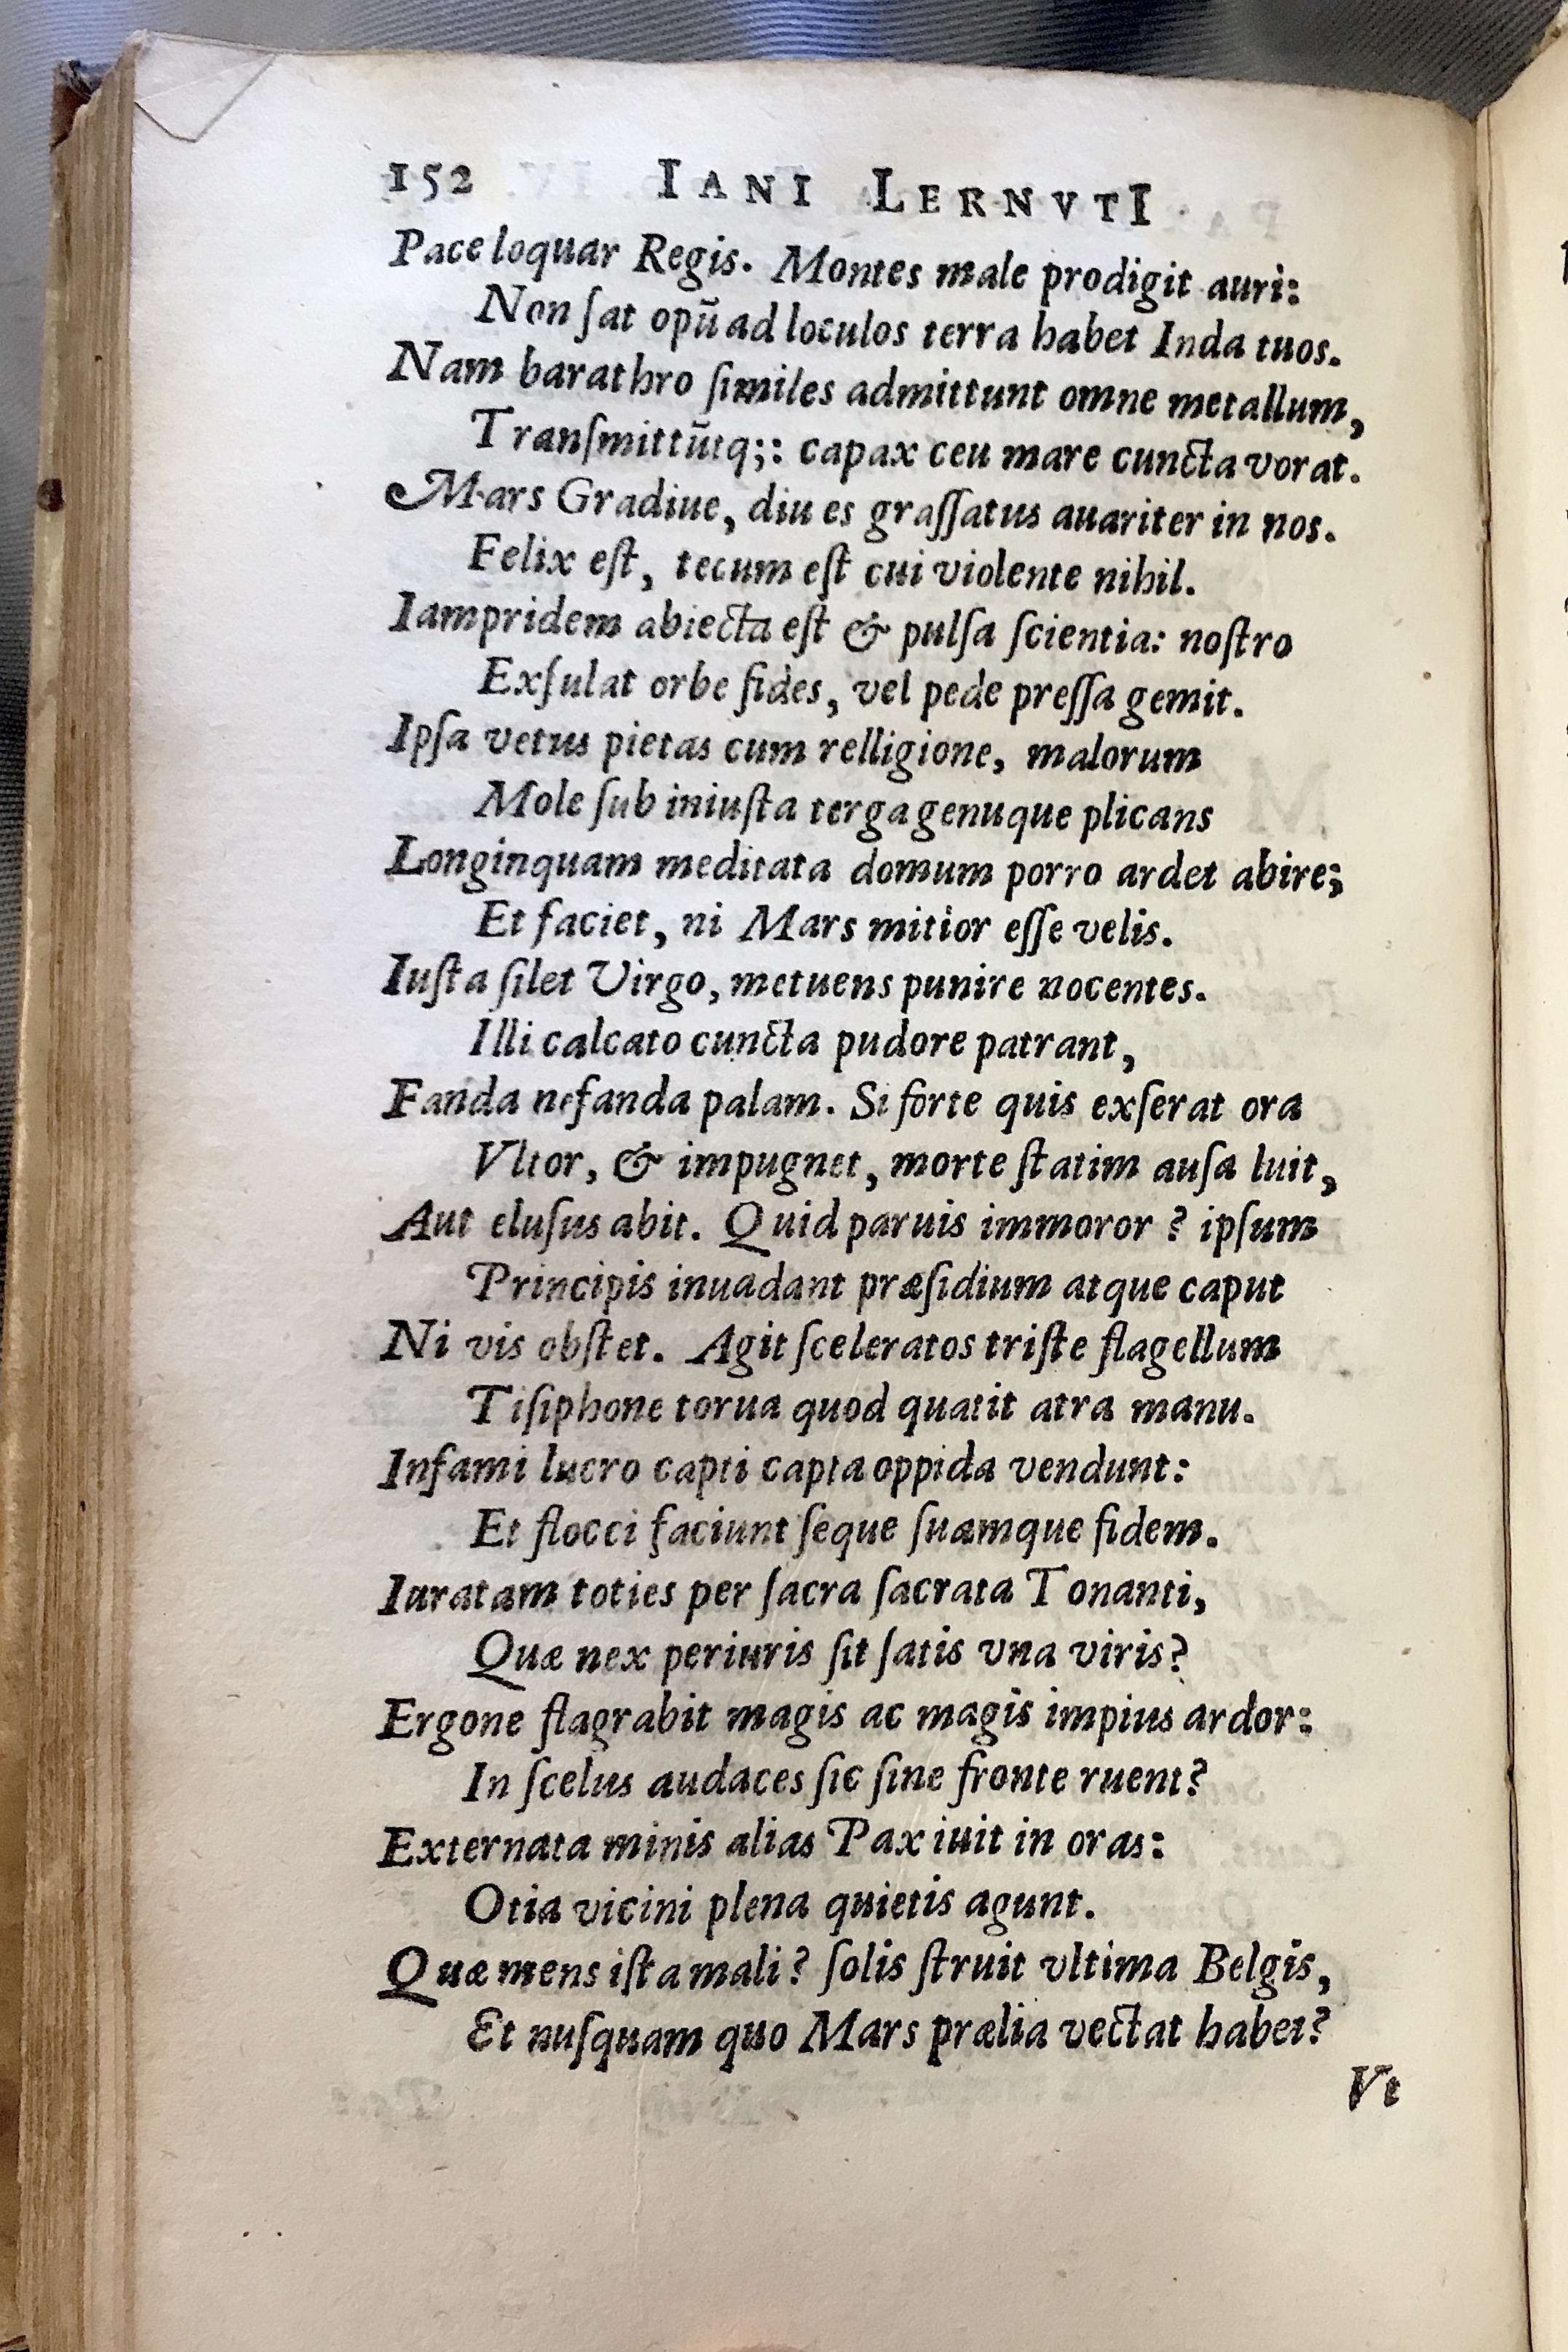 152 IANI LERNVTI
Pace loquar Regis. Montes male prodigit auri:
Non ſat opū ad loculos terra habet Inda tuos.
Nam barathro ſimiles admittunt omne metallum,
Tranſmittūtq;: capax ceu mare cuncta vorat.
Mars Gradiue, diu es graſſatus auariter in nos.
Felix eſt, tecum eſt cui violente nihil.
Iampridem abiecta eſt & pulſa ſcientia: noſtro
Exſulat orbe fides, vel pede preſſa gemit.
Ipſa vetus pietas cum relligione, malorum
Mole ſub iniuſta terga genuque plicans
Longinquam meditata domum porro ardet abire;
Et faciet, ni Mars mitior eſſe velis.
Iuſta ſilet Virgo, metuens punire nocentes.
Illi calcato cuncta pudore patrant,
Fanda nefanda palam. Si forte quis exſerat ora
Vltor, & impugnet, morte ſtatim auſa luit,
Aut eluſus abit. Quid paruis immoror? ipſum
Principis inuadant præſidium atque caput
Ni vis obſtet. Agit ſceleratos triſte flagellum
Tiſiphone torua quod quatit atra manu.
Infami lucro capti capta oppida vendunt:
Et flocci faciunt ſeque ſuamque fidem.
Iuratam toties per ſacra ſacrata Tonanti,
Quæ nex periuris ſit ſatis vna viris?
Ergone flagrabit magis ac magis impius ardor:
In ſcelus audaces ſic ſine fronte ruent?
Externata minis alias Pax iuit in oras:
Otia vicini plena quietis agunt.
Quæ mens iſta mali? ſolis ſtruit vltima Belgis,
Et nuſquam quo Mars prælia vectat habet?
Vt